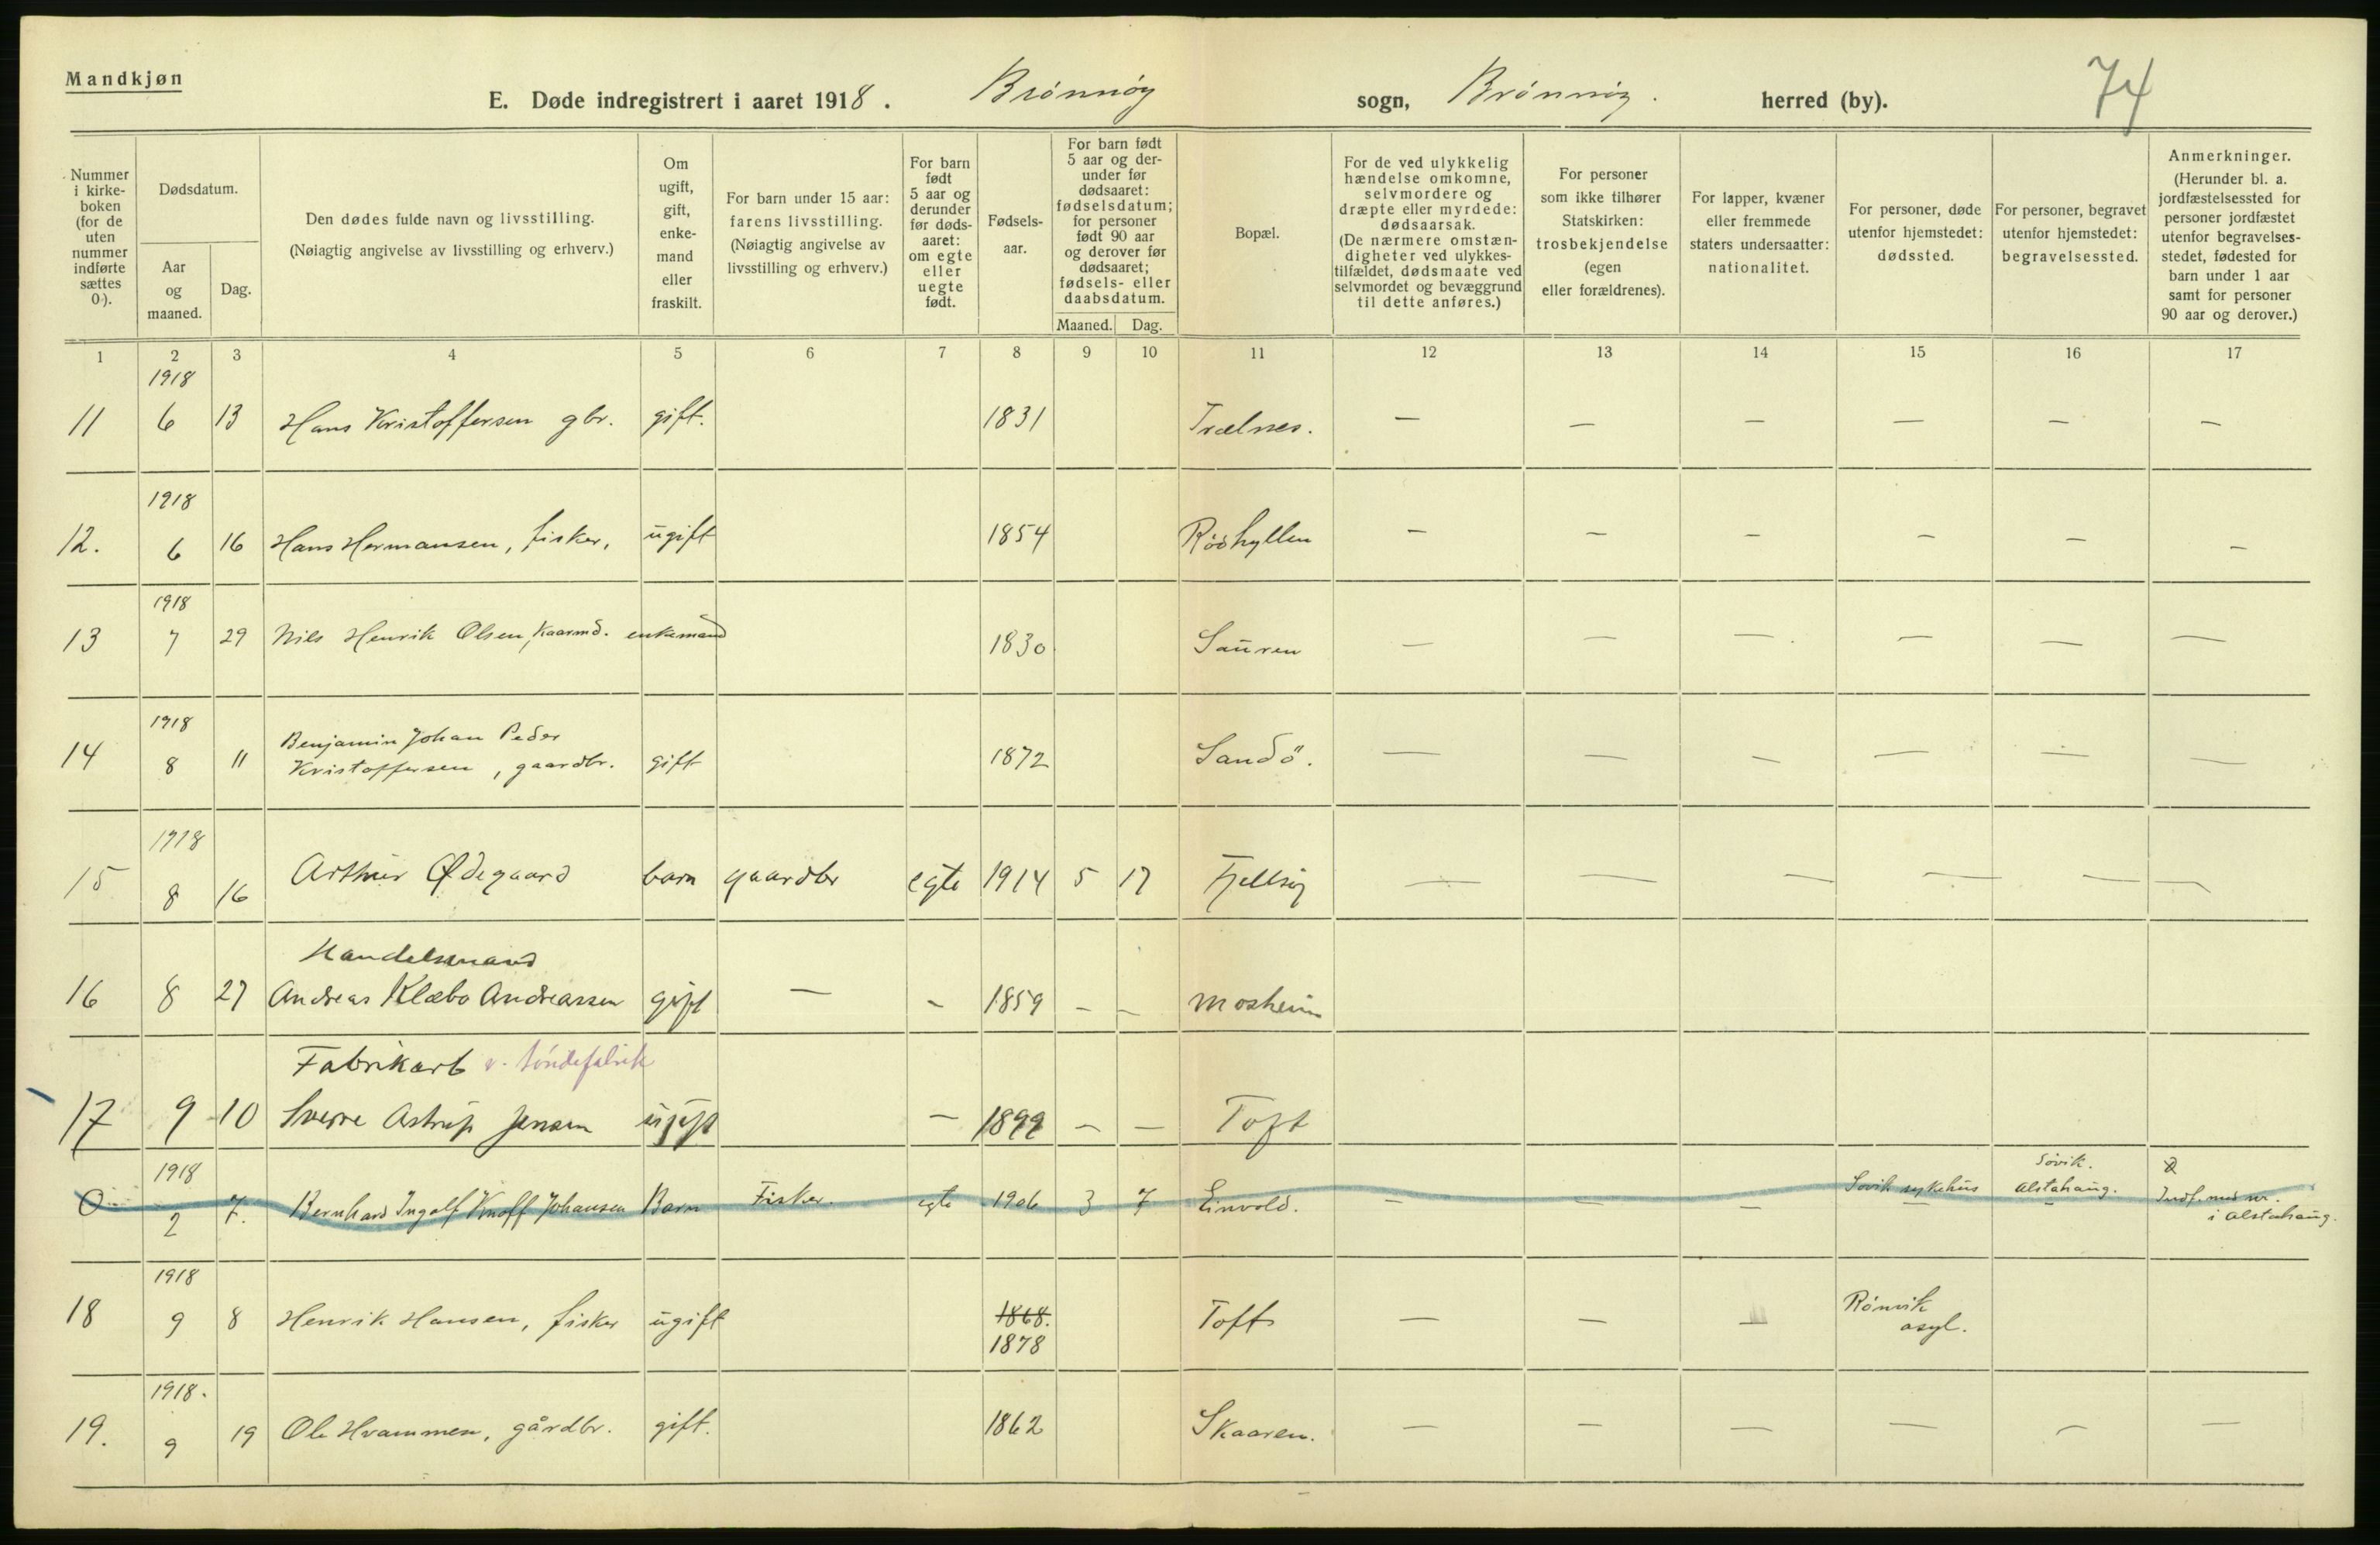 Mandkjøn
E. Døde indregistrert i aaret 1918. Brönnöy sogn, Brönnöy. herred (by). 74
Nummer i kirke-boken (for de uten nummer indførte sættes 0.).
Dødsdatum.
Aar og maaned.
Dag.
Den dødes fulde navn og livsstilling.
(Nøiagtig angivelse av livsstilling og erhverv.)
Om ugift, gift, enke-mand eller fraskilt.
For barn under 15 aar: farens livsstilling. (Nøiagtig angivelse av livsstilling og erhverv.)
For barn født 5 aar og derunder før døds-aaret: om egte eller uegte født.
Fødsels-aar.
For barn født 5 aar og der-under før dødsaaret: fødselsdatum; for personer født 90 aar og derover før dødsaaret; fødsels- eller daabsdatum.
Maaned. Dag.
Bopæl.
For de ved ulykkelig hændelse omkomne, selvmordere og dræpte eller myrdede: dødsaarsak. (De nærmere omstæn-digheter ved ulykkes-tilfældet, dødsmaate ved selvmordet og bevæggrund til dette anføres.)
For personer som ikke tilhører Statskirken: trosbekjendelse (egen eller forældrenes).
For lapper, kvæner eller fremmede staters undersaatter: nationalitet.
For personer, døde utenfor hjemstedet: dødssted.
For personer, begravet utenfor hjemstedet: begravelsessted.
Anmerkninger. (Herunder bl. a. jordfæstelsessted for personer jordfæstet utenfor begravelses-stedet, fødested for barn under 1 aar samt for personer 90 aar og derover.)
1 2 3 4 5 6 7 8 9 10 11 12 13 14 15 16 17
1918
11 6 13 Hans Kristoffersen gbr. gift. 1831 Trælnes. — — — — — —
1918
12. 6 16 Hans Hermansen, fisker, ugift 1854 Rööhyllen — — — — — —
1918
13 7 29 Nils Henrik Olsen, kaarmd. enkemand 1830 Sauren — — — — — —
1918
Benjamin Johan Peder
14 8 11 Kristoffersen, gaardbr. gift 1872 Sandö. — — — — — —
1918
15 8 16 Arthur Ødegaard barn gaardbr egte 1914 5 17 Fjellsöy — — — — — —
Handelsmand
16 8 27 Andreas Klæbo Andreassen gift — - 1859 - - Mosheim
Fabrikarb v. töndefabrik
17 9 10 Sverre Astrup Jensen ugift — 1899 — — Toft
1918
0 2 7. Bernhard Ingolf Knoff Johansen Barn Fisker. egte 1906 3 7 Einvold. — — — Sövik sykehus — Sövik. Alstahaug. — Indf. med nr. 2 i Alstahaug.
1918
18 9 8 Henrik Hansen, fisker ugift 1868. 1878 Toft — — — Rönvik asyl.
1918.
19. 9 19 Ole Hvammen, gårdbr. gift. 1862 Skaaren. — — — — — —